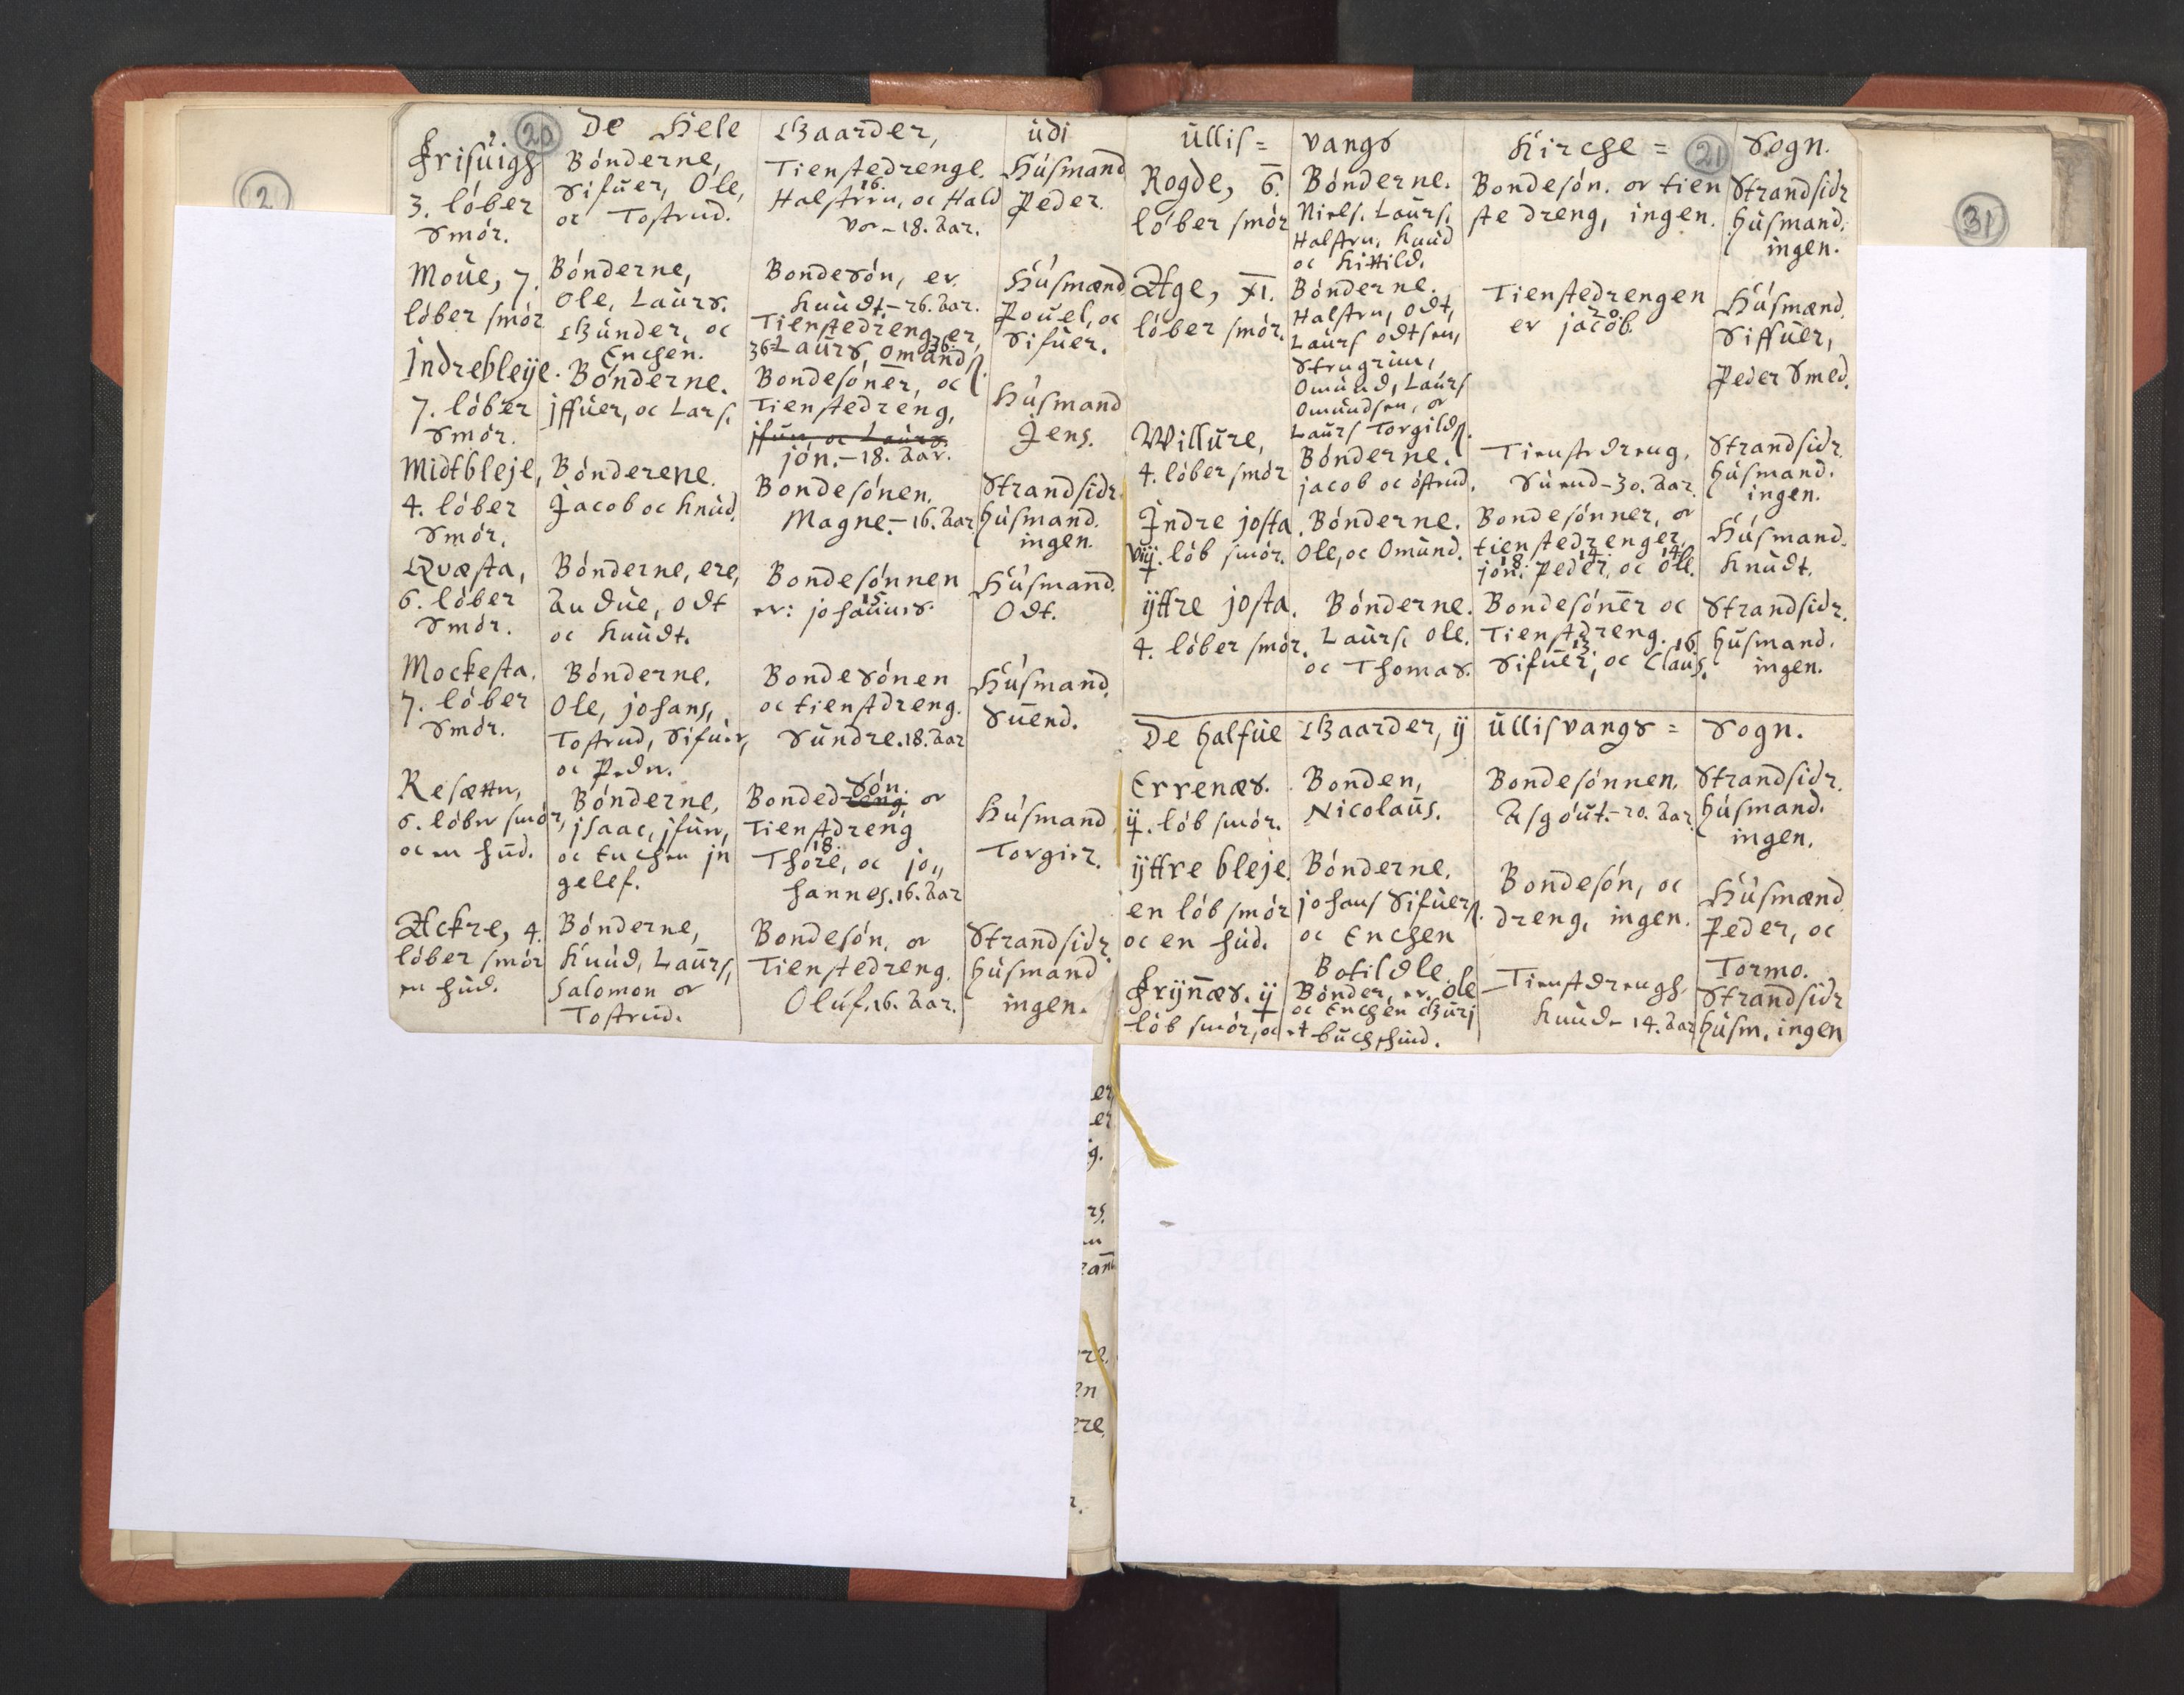 20
De Hele Gaarder, udi
Frisuigh
3. lóber
Smór.
Bónderne,
Sifuer, Ole,
oc Tostend.
Tienstedrenge.
16.
Halsten, oc Hald
vor - 18. Aar.
Húsmand
Peder.
Moue, 7.
lóber smór
Bónderne,
Ole, Laurs.
Gunder, oc
Enchen.
Bondesón, er
Knudt - 26. Aar.
Tienstedrenger,
36 36.
Laurs, Omands.
Húsmænd
Pouel, oc
Sifuer.
Indrebleije.
7. lóber
Smór.
Bónderne.
jffuer, oc Lars.
Bondesóner, oc
Tienstedreng,
jfuer, oc Laurs.
jón. - 18. Aar.
Húsmand
Jens.
Midtbleje,
4. lóber
Smór.
Bónderene.
Jacob oc Knud.
Bondesónen.
Magne - 16. Aar
Strandsidr.
húsmand.
ingen.
Qvæsta,
6. lóber
Smór.
Bónderne, ere,
Audue, Odt
oc Knudt.
Bondesónnen
15.
er: johannes.
Húsmand.
Odt.
Mockesta.
7. lóber
Smór.
Bónderne.
Ole, johans,
Tostend, Sifuer,
oc Peder.
Bondesónen
oc tienstdreng.
Sundre. 18. Aar
Húsmand.
Suend.
Resætter,
6. lóber smór,
oc en hud.
Bónderne,
jsaac, jfuer,
oc Enchen jn
gelef.
són.
Bondedreng, oc
Tienstdreng
18.
Thore, oc jo,,
hannes. 16. Aar
Húsmand
Torgier.
Ackre, 4.
lóber smór
en hud.
Bónderne,
Knud, Laurs,
Salomon oc
Tostend.
Bondesón. oc
Tienstedreng.
Oluf. 16. Aar.
Strandsidr.
húsmand
ingen.
21
Ullis = vangs Kirche = Sogn.
Rogde, 6.
lóber smór
Bónderne.
Niels. Laurs.
Halsten, Knud
oc Kittild.
Bondesón. oc tien
ste dreng, ingen.
Strandsidr
húsmand.
ingen.
Age, XI.
lóber smór.
Bónderne.
Halsten, Odt,
Laurs Odtsen,
Stengrim,
Omund, Laurs
Omundsen, oc
Laurs Torgilds.
Tienstedrengen
20.
er jacob.
Húsmænd.
Siffuer,
Peder Smed.
Willure,
4. lóber smór
Bónderne.
jacob oc óstend.
Tienstedreng.
Suend - 30. Aar.
Strandsidr.
húsmand.
ingen.
Indre josta.
viij. lób smór.
Bónderne.
Ole, oc Omund.
Bondesónner, oc
tienstedrenger.
18. 14. 14.
jon. peder, oc Ole.
Húsmand.
Knudt.
ijttre josta.
4. lóber smór.
Bónderne.
Laurs, Ole.
oc Thomas.
Bondesóner oc
Tienstdreng.
13. 16.
Sifuer, oc Claus.
Strandsidr.
húsmand.
ingen.
De halfue Gaarder, ij Ullisvangs = Sogn.
Errenæs.
ij. lób smór.
Bonden,
Nicolaus.
Bondesónnen.
Asgóut. - 20. Aar.
Strandsidr.
húsmand.
ingen.
ijttre bleje.
en lób smór
oc en hud.
Bónderne.
johans Sifuers.
oc Enchen
Botildle.
Bondesón, oc
dreng, ingen.
Húsmænd
Peder, oc
Tormo.
Frijnæs. ij
lób smór, oc et buchshind.
Bónder, er. Ole
oc Enchen Guri
Tienstdrengh
Knud - 14. Aar
Strandsidr
húsm. ingen
2
31